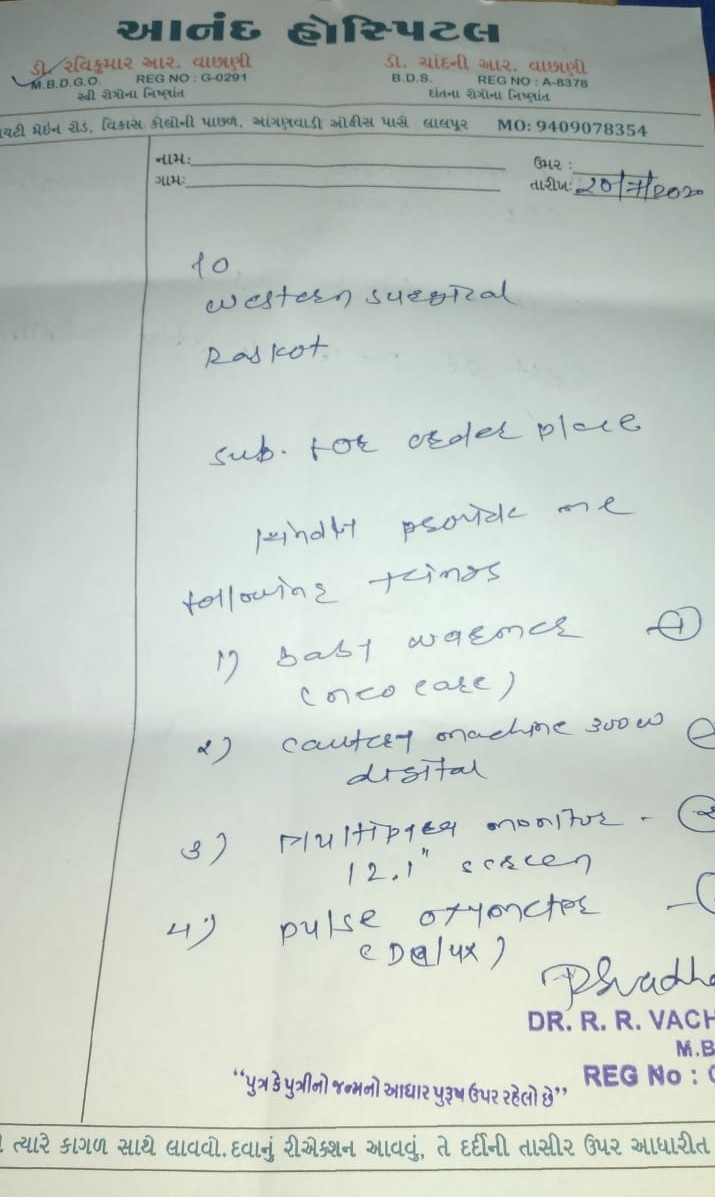 આનંદ હોસ્પિટલ
ડૉ. રવિકુમાર આર. વાછાણી
M.B.D.G.O. REG NO : G-0291
સ્ત્રી રોગોના નિષ્ણાંત
ડૉ. ચાંદની આર. વાછાણી
B.D.S. REG NO : A-8378
દાંતના રોગોના નિષ્ણાંત
મેઈન રોડ, વિકાસ કોલોની પાછળ, આંગણવાડી ઓફીસ પાસે લાલપુર MO: 9409078354
નામ:
ઉંમર :
ગામ:
તારીખ: ૨૦/૭/૨૦૨૦
To
western surgical
Rajkot
sub. for order place
kindly provide me
following things
૧) baby warmer ૧
(neo care)
૨) cautery machine ૩૦૦ w
digital
૩) Multipara monitor - ૨
12.1" screen
૪) pulse oxymeter
(Delux)
DR. R. R. VACH
M.B
REG No : G
“પુત્ર કે પુત્રીનો જન્મનો આધાર પુરૂષ ઉપર રહેલો છે”
ત્યારે કાગળ સાથે લાવવો. દવાનું રીએક્શન આવવું, તે દર્દીની તાસીર ઉપર આધારીત